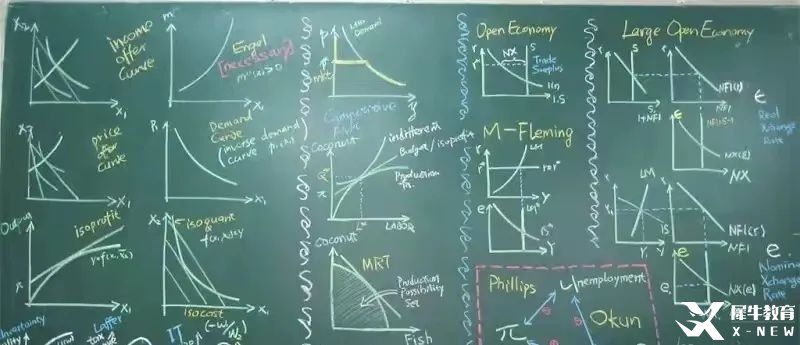 X₂
income
offer
curve
X₁
m
Engel
[necessary]
m''(x₁)>0
X₁
P
Demand
mkt
Competitive
Open Economy
r
S
NX
Trade
Surplus
r*
I.S
Large Open Economy
r
S
I+NFI
r
NFI(r)
NFI
e
NX(e)
NX
ϵ
Real
Xchange
Rate
X₂
price
offer
curve
X₁
P₁
Demand
Curve
(inverse demand
curve
X₁
Coconut
indifferent
Budget/isoprofit
Production
fn.
π
L*
LABOR
M-Fleming
r
LM
r=r*
Y
e
LM*
IS*
Y
r
LM
IS
Y
NFI(r)
NFI
e
NX(e)
e.
Nominal
Xchange
Rate
Output
isoprofit
y=f(x₁,x̄₂)
π
X₁
X₂
isoquant
f(x₁,x₂)≡y
isocost
(-w₁/w₂)
X₁
Coconut
MRT
Production
Possibility
Set
Fish
Phillips
Unemployment
π
Okun
Uncertainty
Laffer
tax
IT
犀牛教育
X-NEW